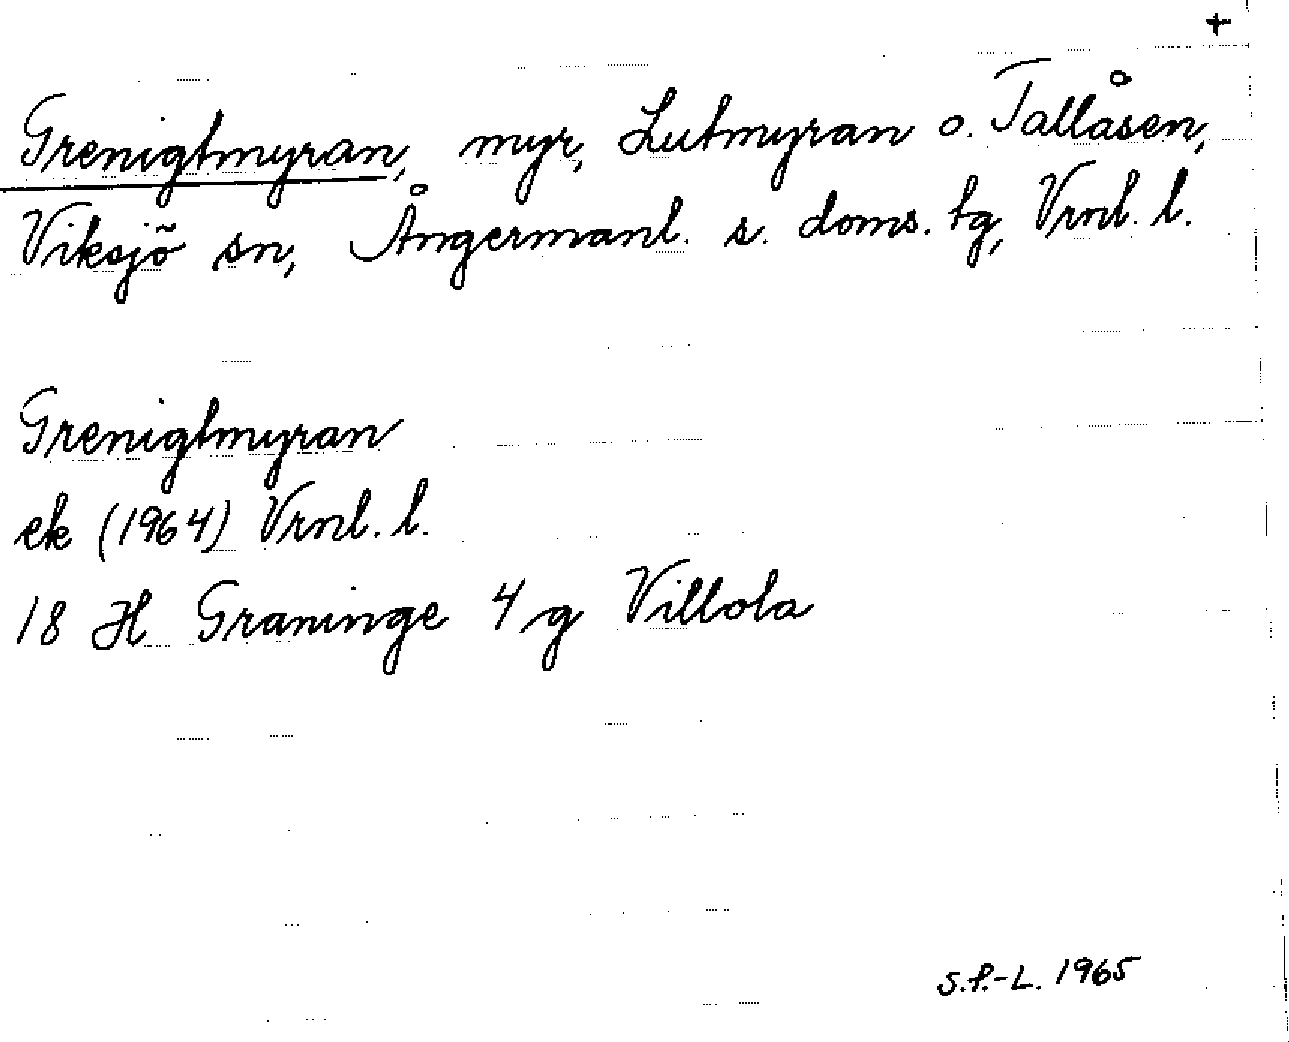 +
Grenigtmyran, myr, Lutmyran o. Tallåsen,
Viksjö sn, Ångermanl. s. doms. tg, Vrnl. l.
Grenigtmyran
ek (1964) Vrnl. l.
18 H Graninge 4 g Villola
S.P.-L. 1965